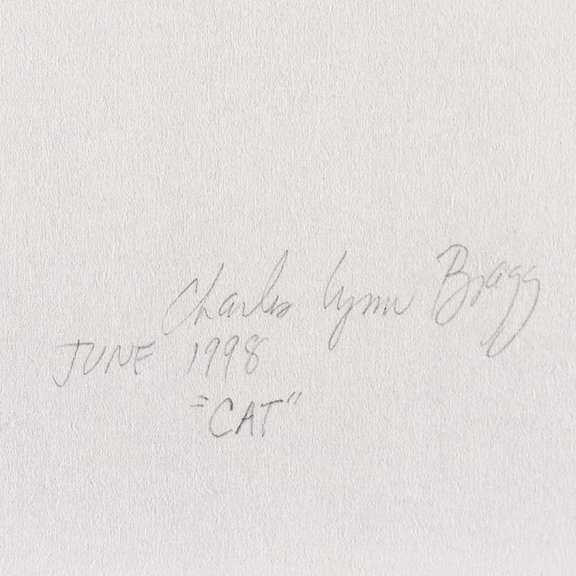 Charles Lynn Bragg
JUNE 1998
"CAT"